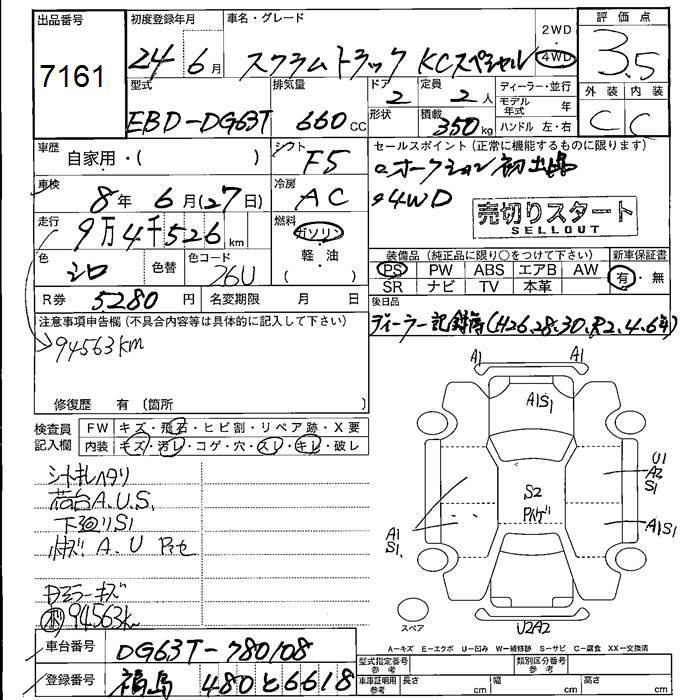 出品番号 7161
初度登録年月 24 6月
車名・グレード スクラムトラック KCスペシャル
2WD
4WD
評価点 3.5
型式 EBD-DG63T
排気量 660CC
ドア 2
定員 2人
形状
積載 350kg
ディーラー・並行
モデル年式 年
ハンドル 左・右
外装 内装
C C
車歴 自家用・( )
シフト F5
セールスポイント(正常に機能するものに限ります)
オークション初出品
4WD
売切りスタート
SELLOUT
車検 8年6月(27日)
冷房 AC
走行 9万4千526km
燃料 ガソリン
軽・油
( )
色 シロ
色替
色コード 26U
装備品(純正品に限り○をつけて下さい)
PS PW ABS エアB AW
SR ナビ TV 本革
新車保証書
有・無
R券 5280円
名変期限 月 日
後日品
ディーラー記録簿(H26,28,30,R2,4,6年)
注意事項申告欄(不具合内容等は具体的に記入して下さい)
94563km
修復歴 有(箇所 )
検査員記入欄
FW キズ・飛石・ヒビ割・リペア跡・X要
内装 キズ・汚レ・コゲ・穴・スレ・キレ・破レ
シートキレヘタリ
荷台A.U.S.
下廻りS1
A.U
ミラーキズ
94563km
A1 A1
A1S1
U1
A2
S1
S2
A1
S1
A1S1
U2A2
スペア
A-キズ E-エクボ U-凹み W-補修跡 S-サビ C-腐食 XX-交換済
車台番号 DG63T-780108
登録番号 福島 480と6618
型式指定番号 参考
類別区分番号 参考
車庫証明用参考 長さ cm 幅 cm 高さ cm